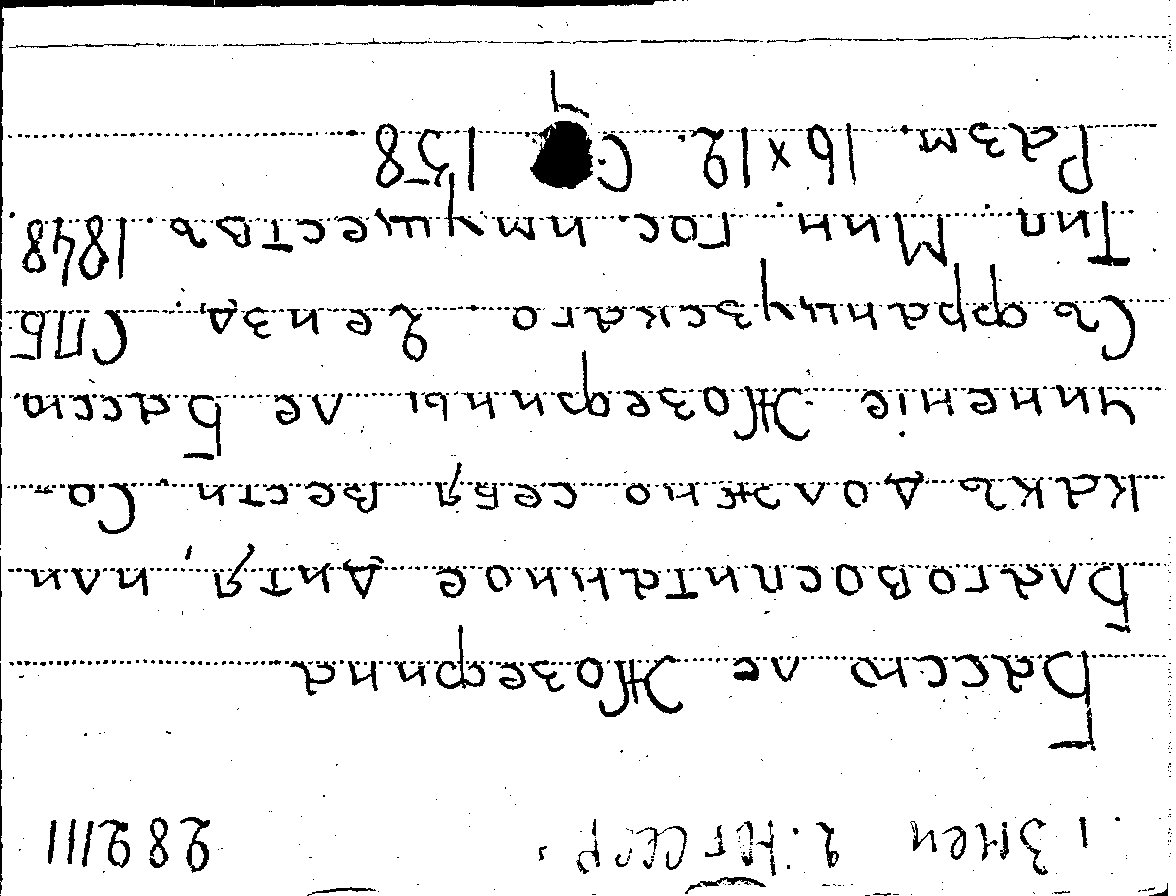 282111
Бассю ле Жозефина
Благовоспитанное дитя, или
какъ должно себя вести. Со-
чиненіе Жозефины ле Бассю
Съ французскаго. 2е изд. СПБ
Тип. Мин. гос. имуществъ. 1848
Разм. 16 x 12. С. 158